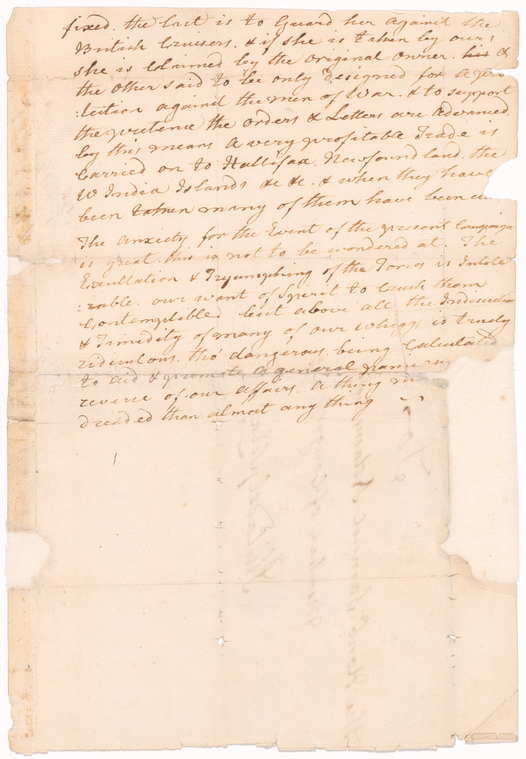 fixed. the last is to Guard her against the
British Cruisers. & if she is taken by our
she is Claimed by the original owner. &
the other said to be only Designed for a
:tection against the men of War. & to support
the pretence the orders & Letters are Advanced
by this means a very profitable Trade is
Carried on to Hallifax Newfoundland. the
W India Islands &c &c. & when they have
been taken many of them have been
The anxiety for the Event of the present Campaign
is great. this is not to be wondered at. The
Exultation & Tryumphing of the Tories is Intole
:rable. our want of Spirit to Crush them
Contemptible. but above all the
& Timidity of many of our Whiggs is truly
ridiculous. tho' dangerous. being Calculated
to aid & promote a general
reverse of our affairs. A thing
dreaded than almost any thing